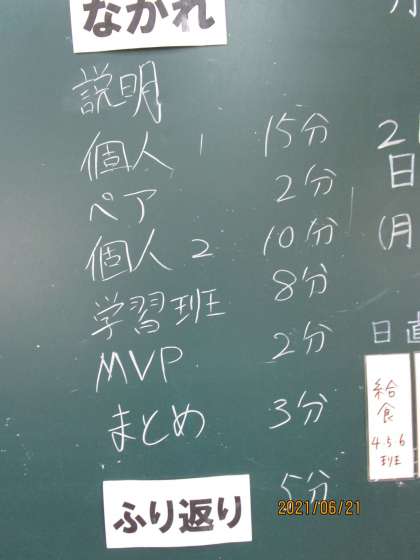 ながれ
説明
個人1 15分
ペア 2分
個人2 10分
学習班 8分
MVP 2分
まとめ 3分
ふり返り 5分
2
日
(月
日直
給食
4.5.6
班
2021/06/21